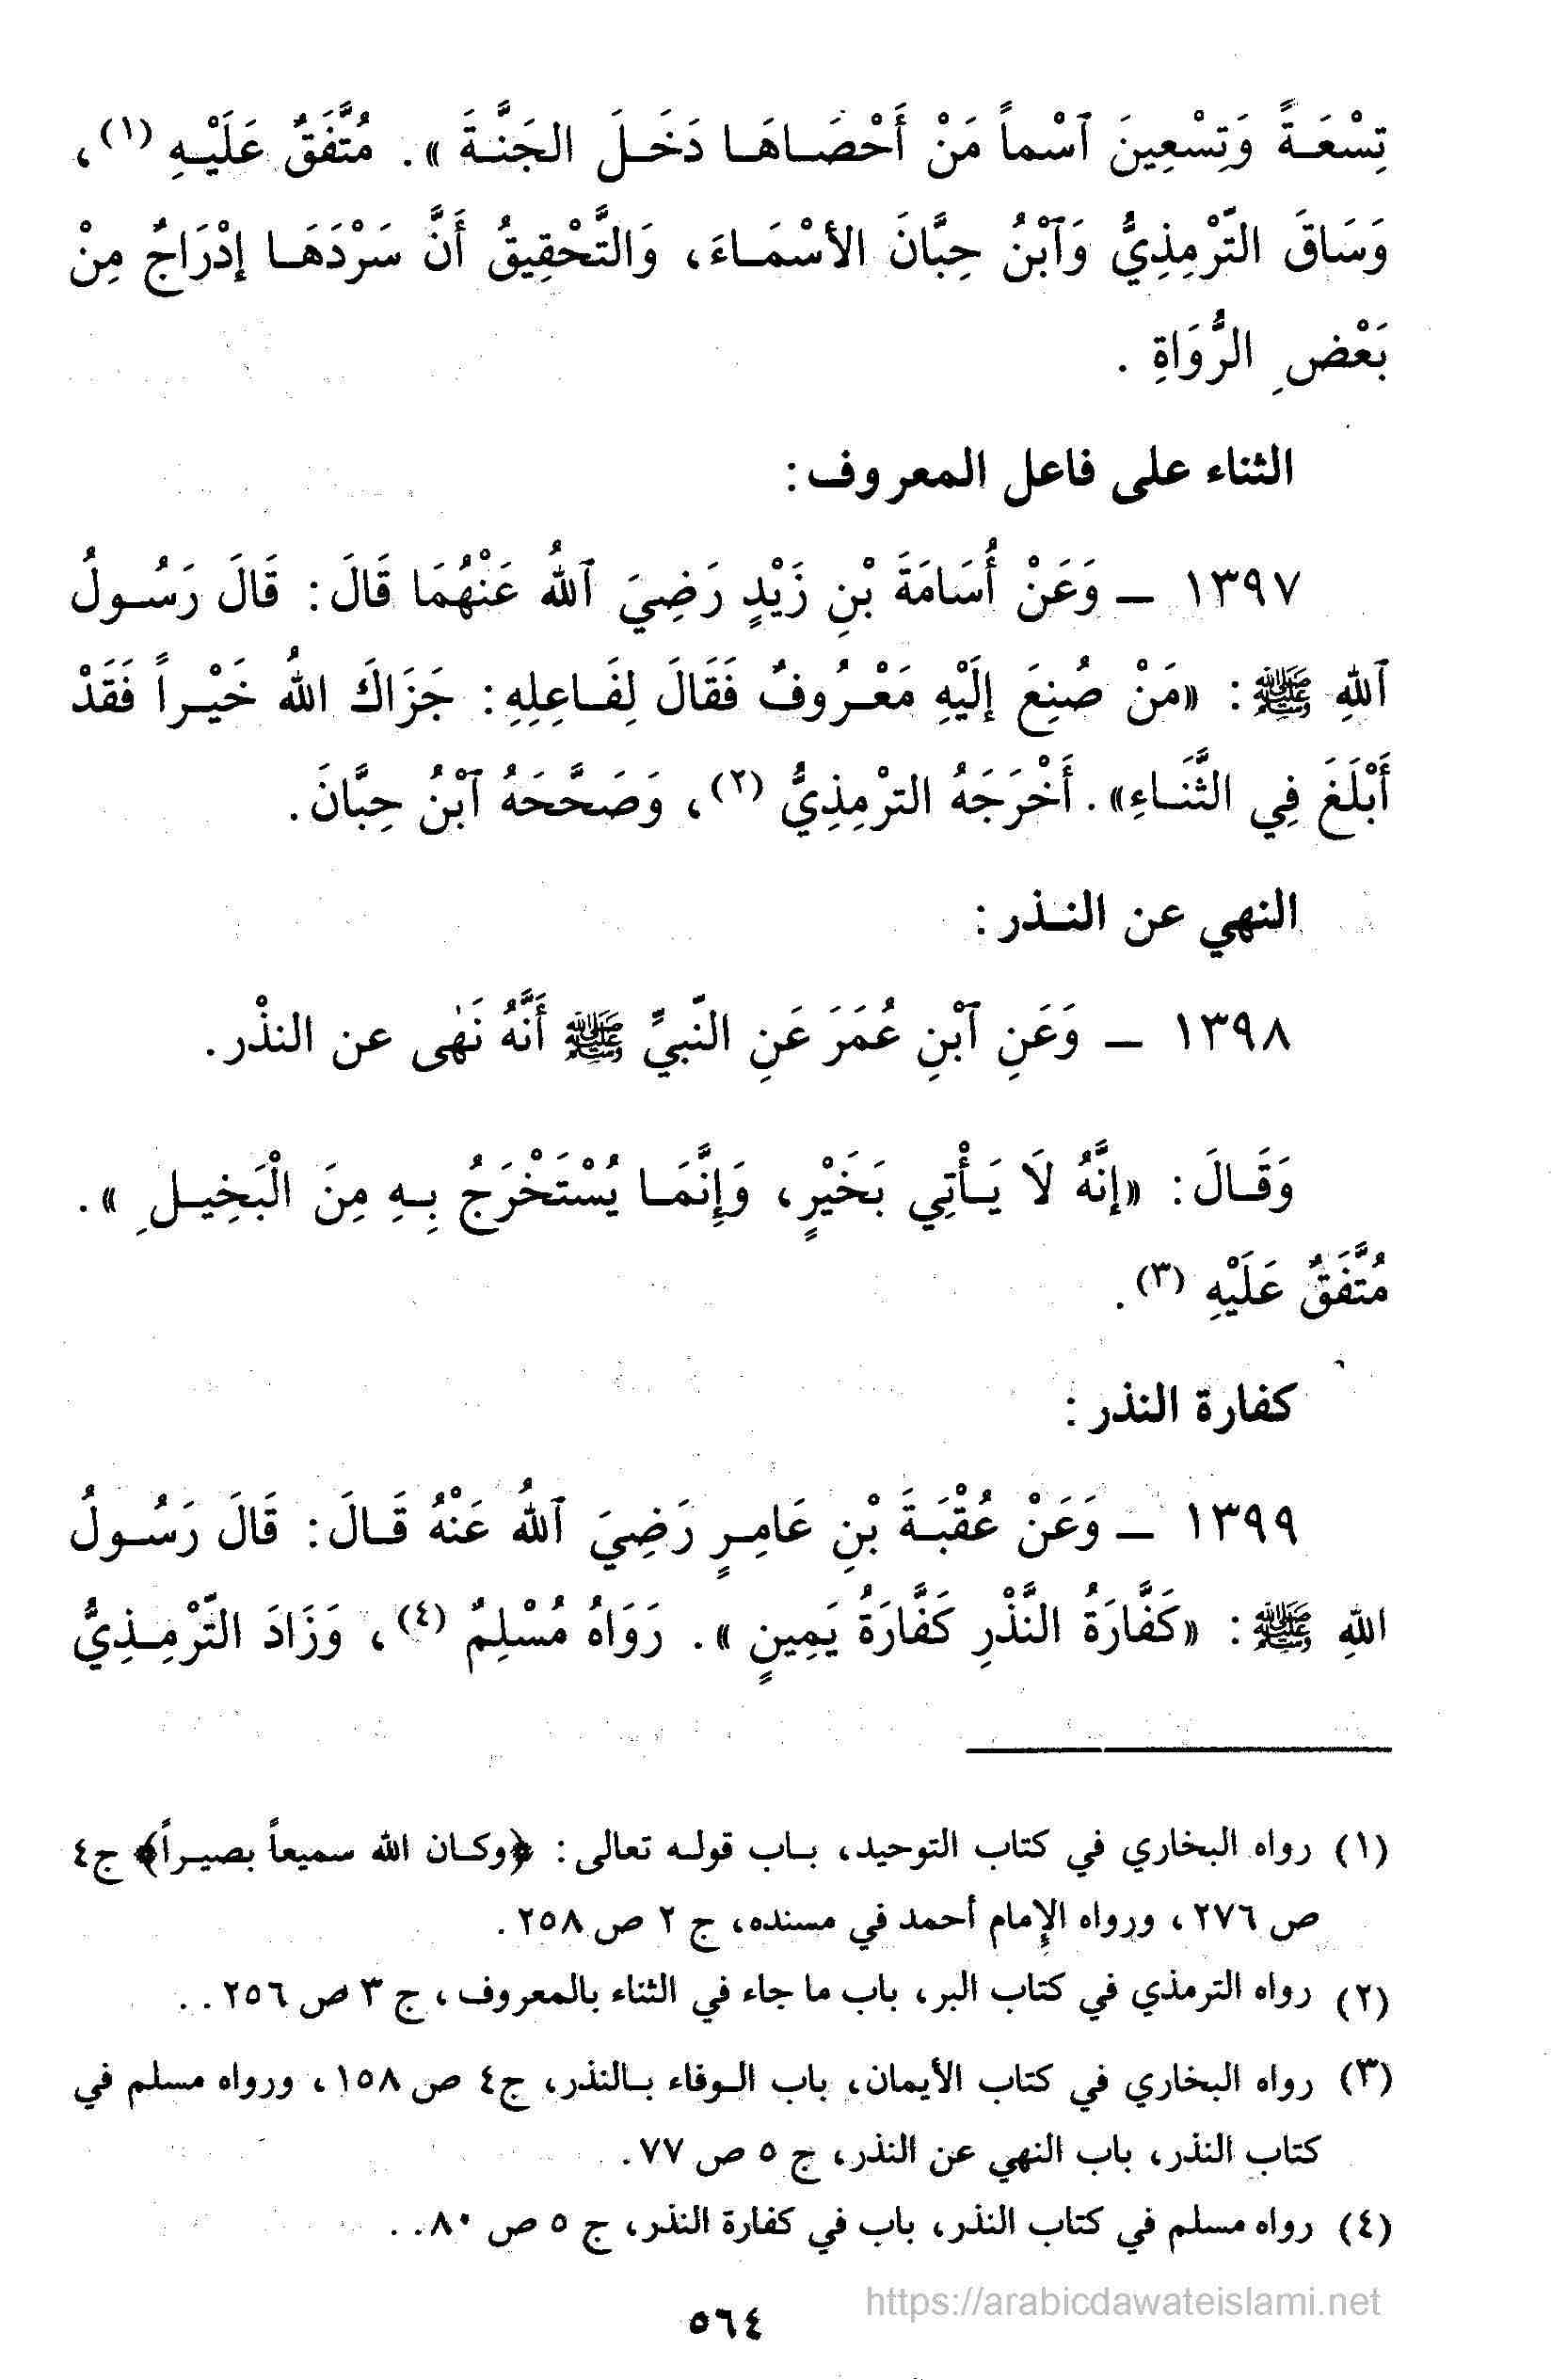 تِسْعَةً وَتِسْعِينَ ٱسْماً مَنْ أَحْصَاهَا دَخَلَ الجَنَّةَ». مُتَّفَقٌ عَلَيْهِ (١)،
وَسَاقَ التِّرْمِذِيُّ وَٱبْنُ حِبَّانَ الأسْمَاءَ، وَالتَّحْقِيقُ أَنَّ سَرْدَهَا إدْرَاجٌ مِنْ
بَعْضِ الرُّوَاةِ.
الثناء على فاعل المعروف:
١٣٩٧ ــ وَعَنْ أُسَامَةَ بْنِ زَيْدٍ رَضِيَ ٱللهُ عَنْهُمَا قَالَ: قَالَ رَسُولُ
ٱللهِ ﷺ: «مَنْ صُنِعَ إلَيْهِ مَعْرُوفٌ فَقَالَ لِفَاعِلِهِ: جَزَاكَ اللهُ خَيْراً فَقَدْ
أَبْلَغَ فِي الثَّنَاءِ». أَخْرَجَهُ الترْمِذِيُّ (٢)، وَصَحَّحَهُ ٱبْنُ حِبَّانَ.
النهي عن النذر:
١٣٩٨ ــ وَعَنِ ٱبْنِ عُمَرَ عَنِ النّبيِّ ﷺ أَنَّهُ نَهٰى عن النذْر.
وَقَالَ: «إنَّهُ لَا يَأْتِي بَخَيْرٍ، وَإِنَّمَا يُسْتَخْرَجُ بِهِ مِنَ الْبَخِيلِ».
مُتَّفَقٌ عَلَيْهِ (٣).
كفارة النذر:
١٣٩٩ ــ وَعَنْ عُقْبَةَ بْنِ عَامِرٍ رَضِيَ ٱللهُ عَنْهُ قَالَ: قَالَ رَسُولُ
اللهِ ﷺ: «كَفَّارَةُ النَّذْرِ كَفَّارَةُ يَمِينٍ». رَوَاهُ مُسْلِمٌ (٤)، وَزَادَ التِّرْمِذِيُّ
(١) رواه البخاري في كتاب التوحيد، باب قوله تعالى: ﴿وكان الله سميعاً بصيراً﴾ ج٤
ص ٢٧٦، ورواه الإمام أحمد في مسنده، ج ٢ ص ٢٥٨.
(٢) رواه الترمذي في كتاب البر، باب ما جاء في الثناء بالمعروف، ج ٣ ص ٢٥٦..
(٣) رواه البخاري في كتاب الأيمان، باب الوفاء بالنذر، ج٤ ص ١٥٨، ورواه مسلم في
كتاب النذر، باب النهي عن النذر، ج ٥ ص ٧٧.
(٤) رواه مسلم في كتاب النذر، باب في كفارة النذر، ج ٥ ص ٨٠..
https://arabicdawateislami.net
٥٦٤